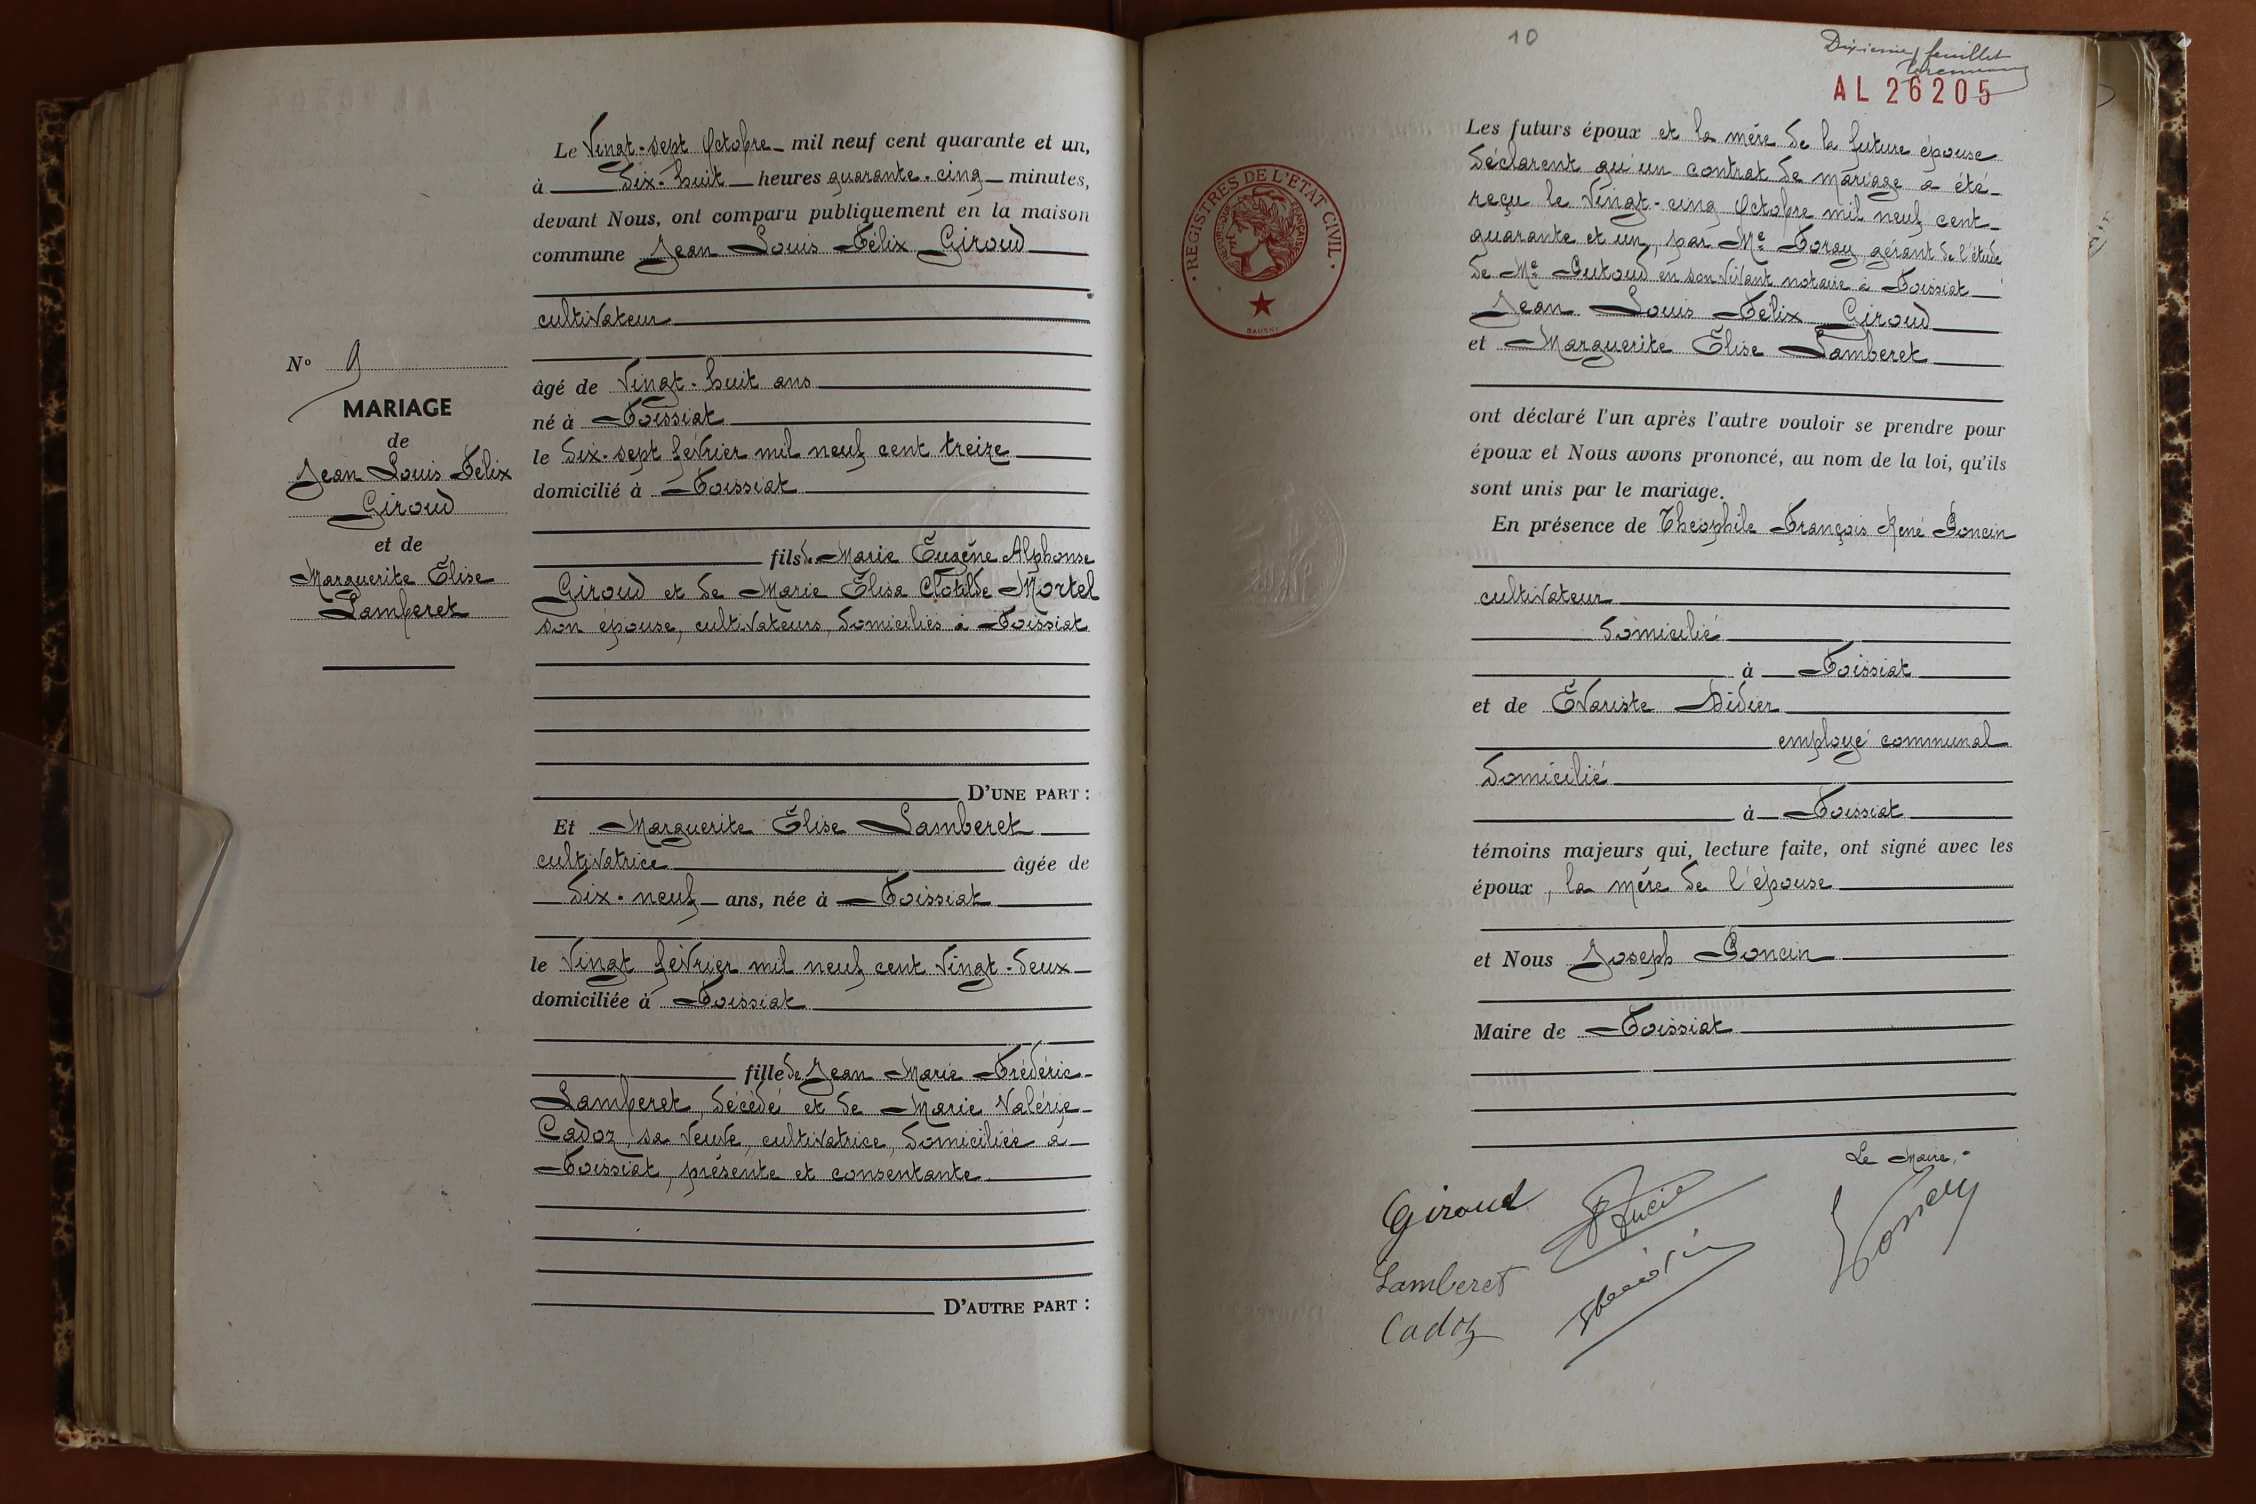 Le Vingt-sept Octobre mil neuf cent quarante et un,
à dix-huit heures quarante-cinq minutes,
devant Nous, ont comparu publiquement en la maison
commune Jean Louis Félix Giroud
cultivateur
âgé de Vingt-huit ans
né à Foissiat
le dix-sept février mil neuf cent treize
domicilié à Foissiat
fils de Marie Eugène Alphonse
Giroud et de Marie Élisa Clotilde Mortel
son épouse, cultivateurs, domiciliés à Foissiat
D'UNE PART :
Et Marguerite Élise Lamberet
cultivatrice âgée de
dix-neuf ans, née à Foissiat
le Vingt février mil neuf cent Vingt-deux
domiciliée à Foissiat
fille de Jean Marie Frédéric
Lamberet, décédé et de Marie Valérie
Cadoz, sa veuve, cultivatrice, domiciliée à
Foissiat, présente et consentante
D'AUTRE PART :
No 9
MARIAGE
de
Jean Louis Félix
Giroud
et de
Marguerite Élise
Lamberet
10
Dixième feuillet
AL 26205
REGISTRES DE L'ETAT CIVIL
Les futurs époux et la mère de la future épouse
déclarent qu'un contrat de mariage a été
reçu le Vingt-cinq Octobre mil neuf cent
quarante et un, par Me gérant de l'étude
de Me en son vivant notaire à Foissiat
Jean Louis Félix Giroud
et Marguerite Élise Lamberet
ont déclaré l'un après l'autre vouloir se prendre pour
époux et Nous avons prononcé, au nom de la loi, qu'ils
sont unis par le mariage.
En présence de Théophile François René Poncin
cultivateur
domicilié
à Foissiat
et de Évariste Didier
employé communal
domicilié
à Foissiat
témoins majeurs qui, lecture faite, ont signé avec les
époux, la mère de l'épouse
et Nous Joseph Poncin
Maire de Foissiat
Le Maire,
Giroud
Lamberet
Cadoz